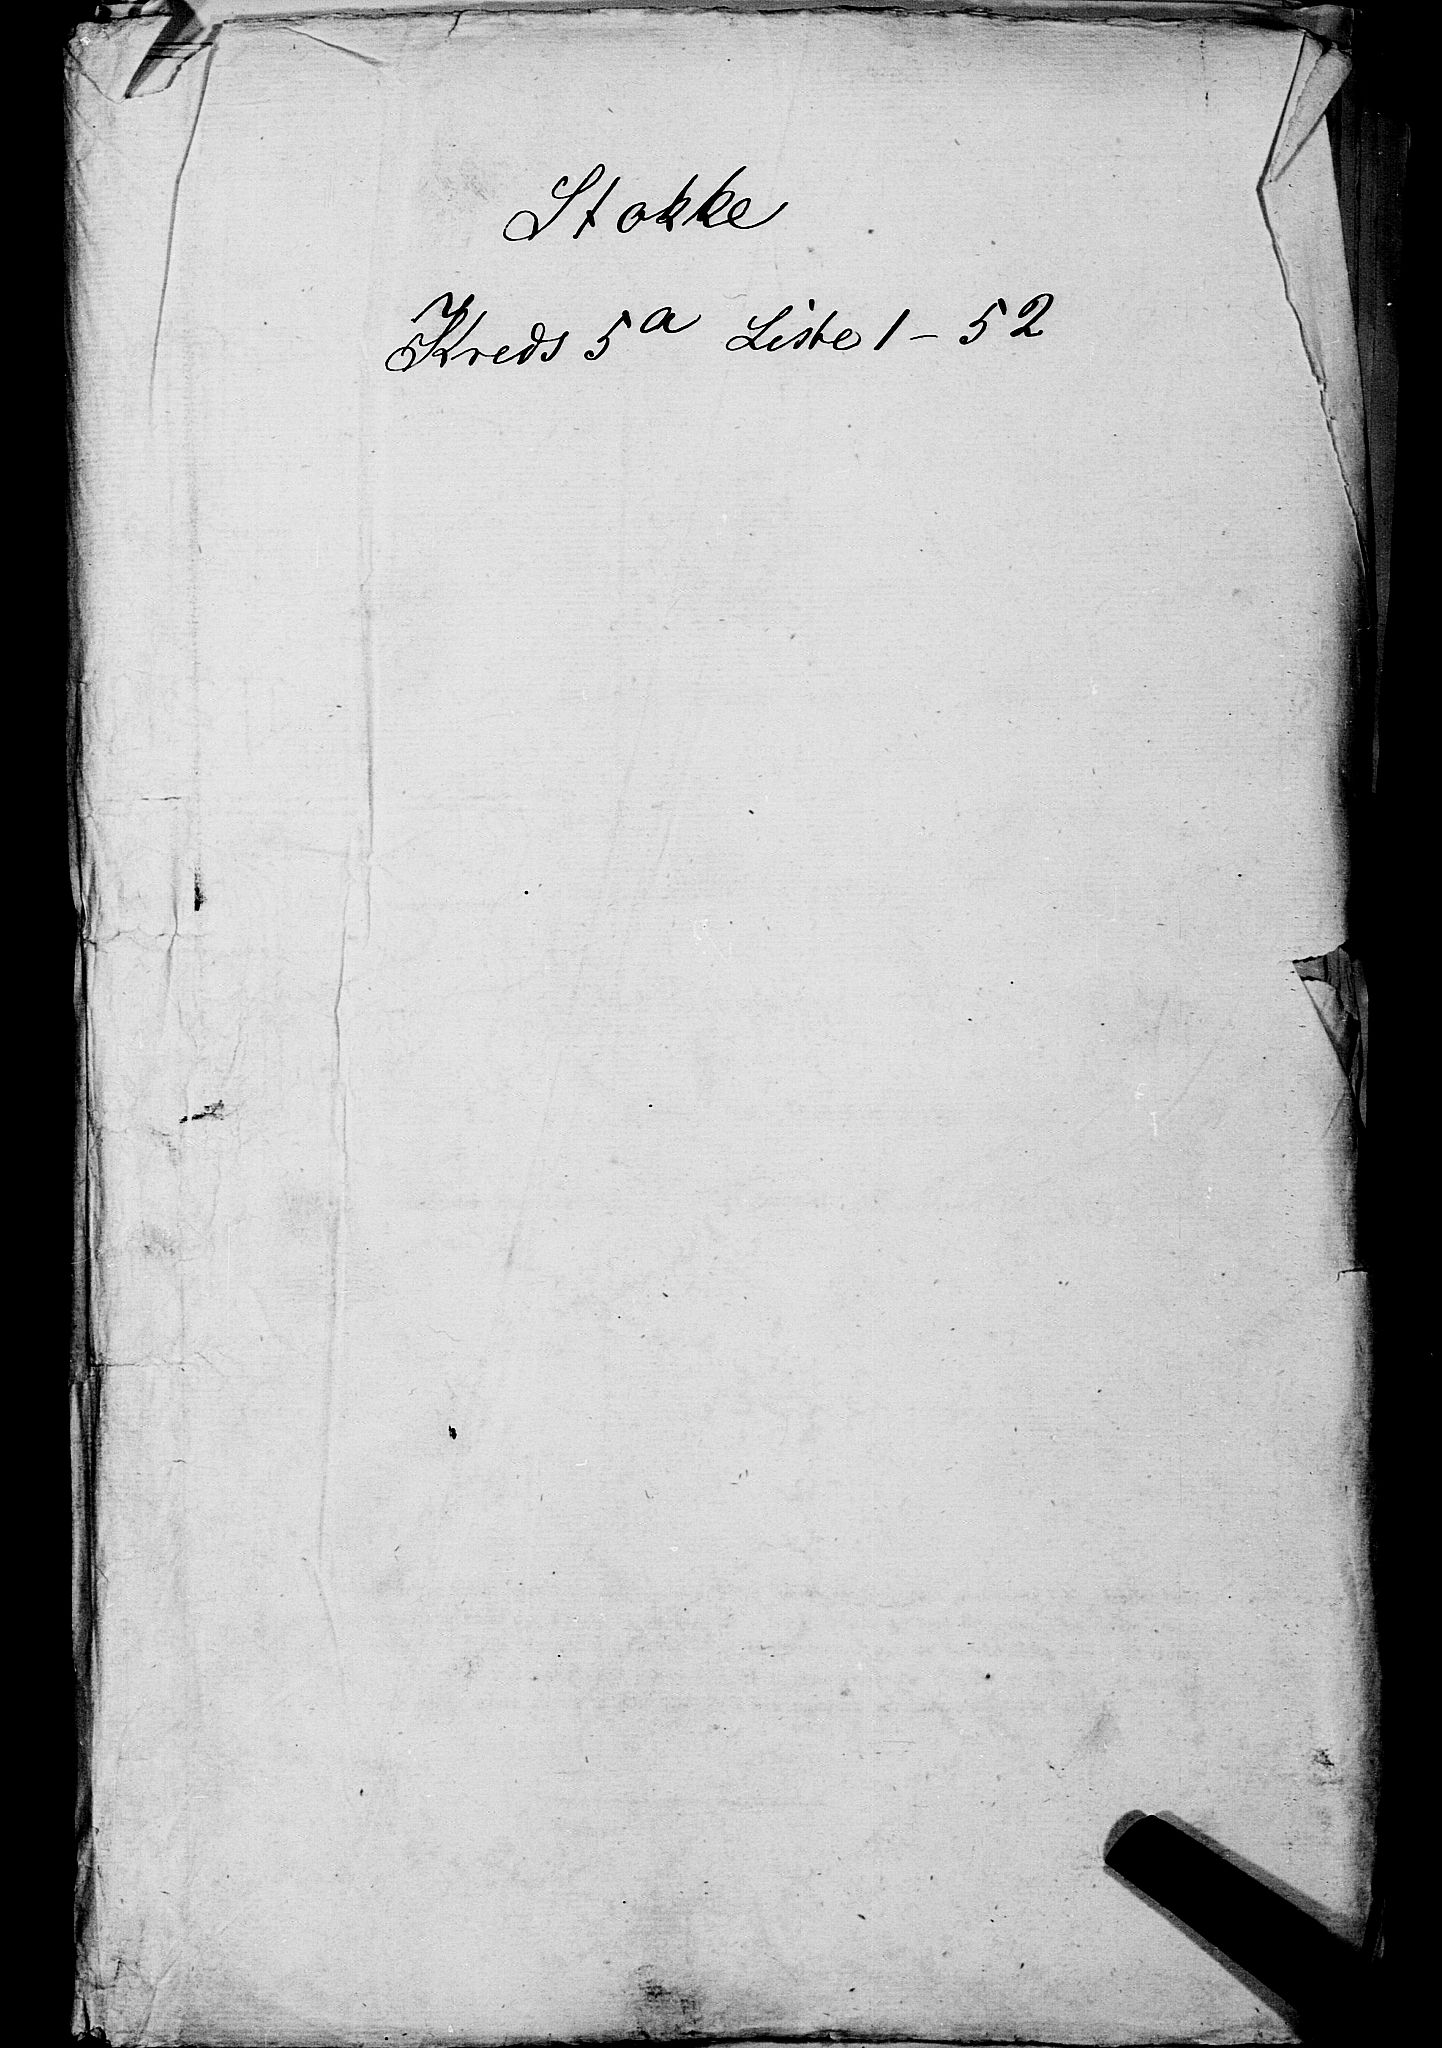 Stokke
Kreds 5a Liste 1 - 52